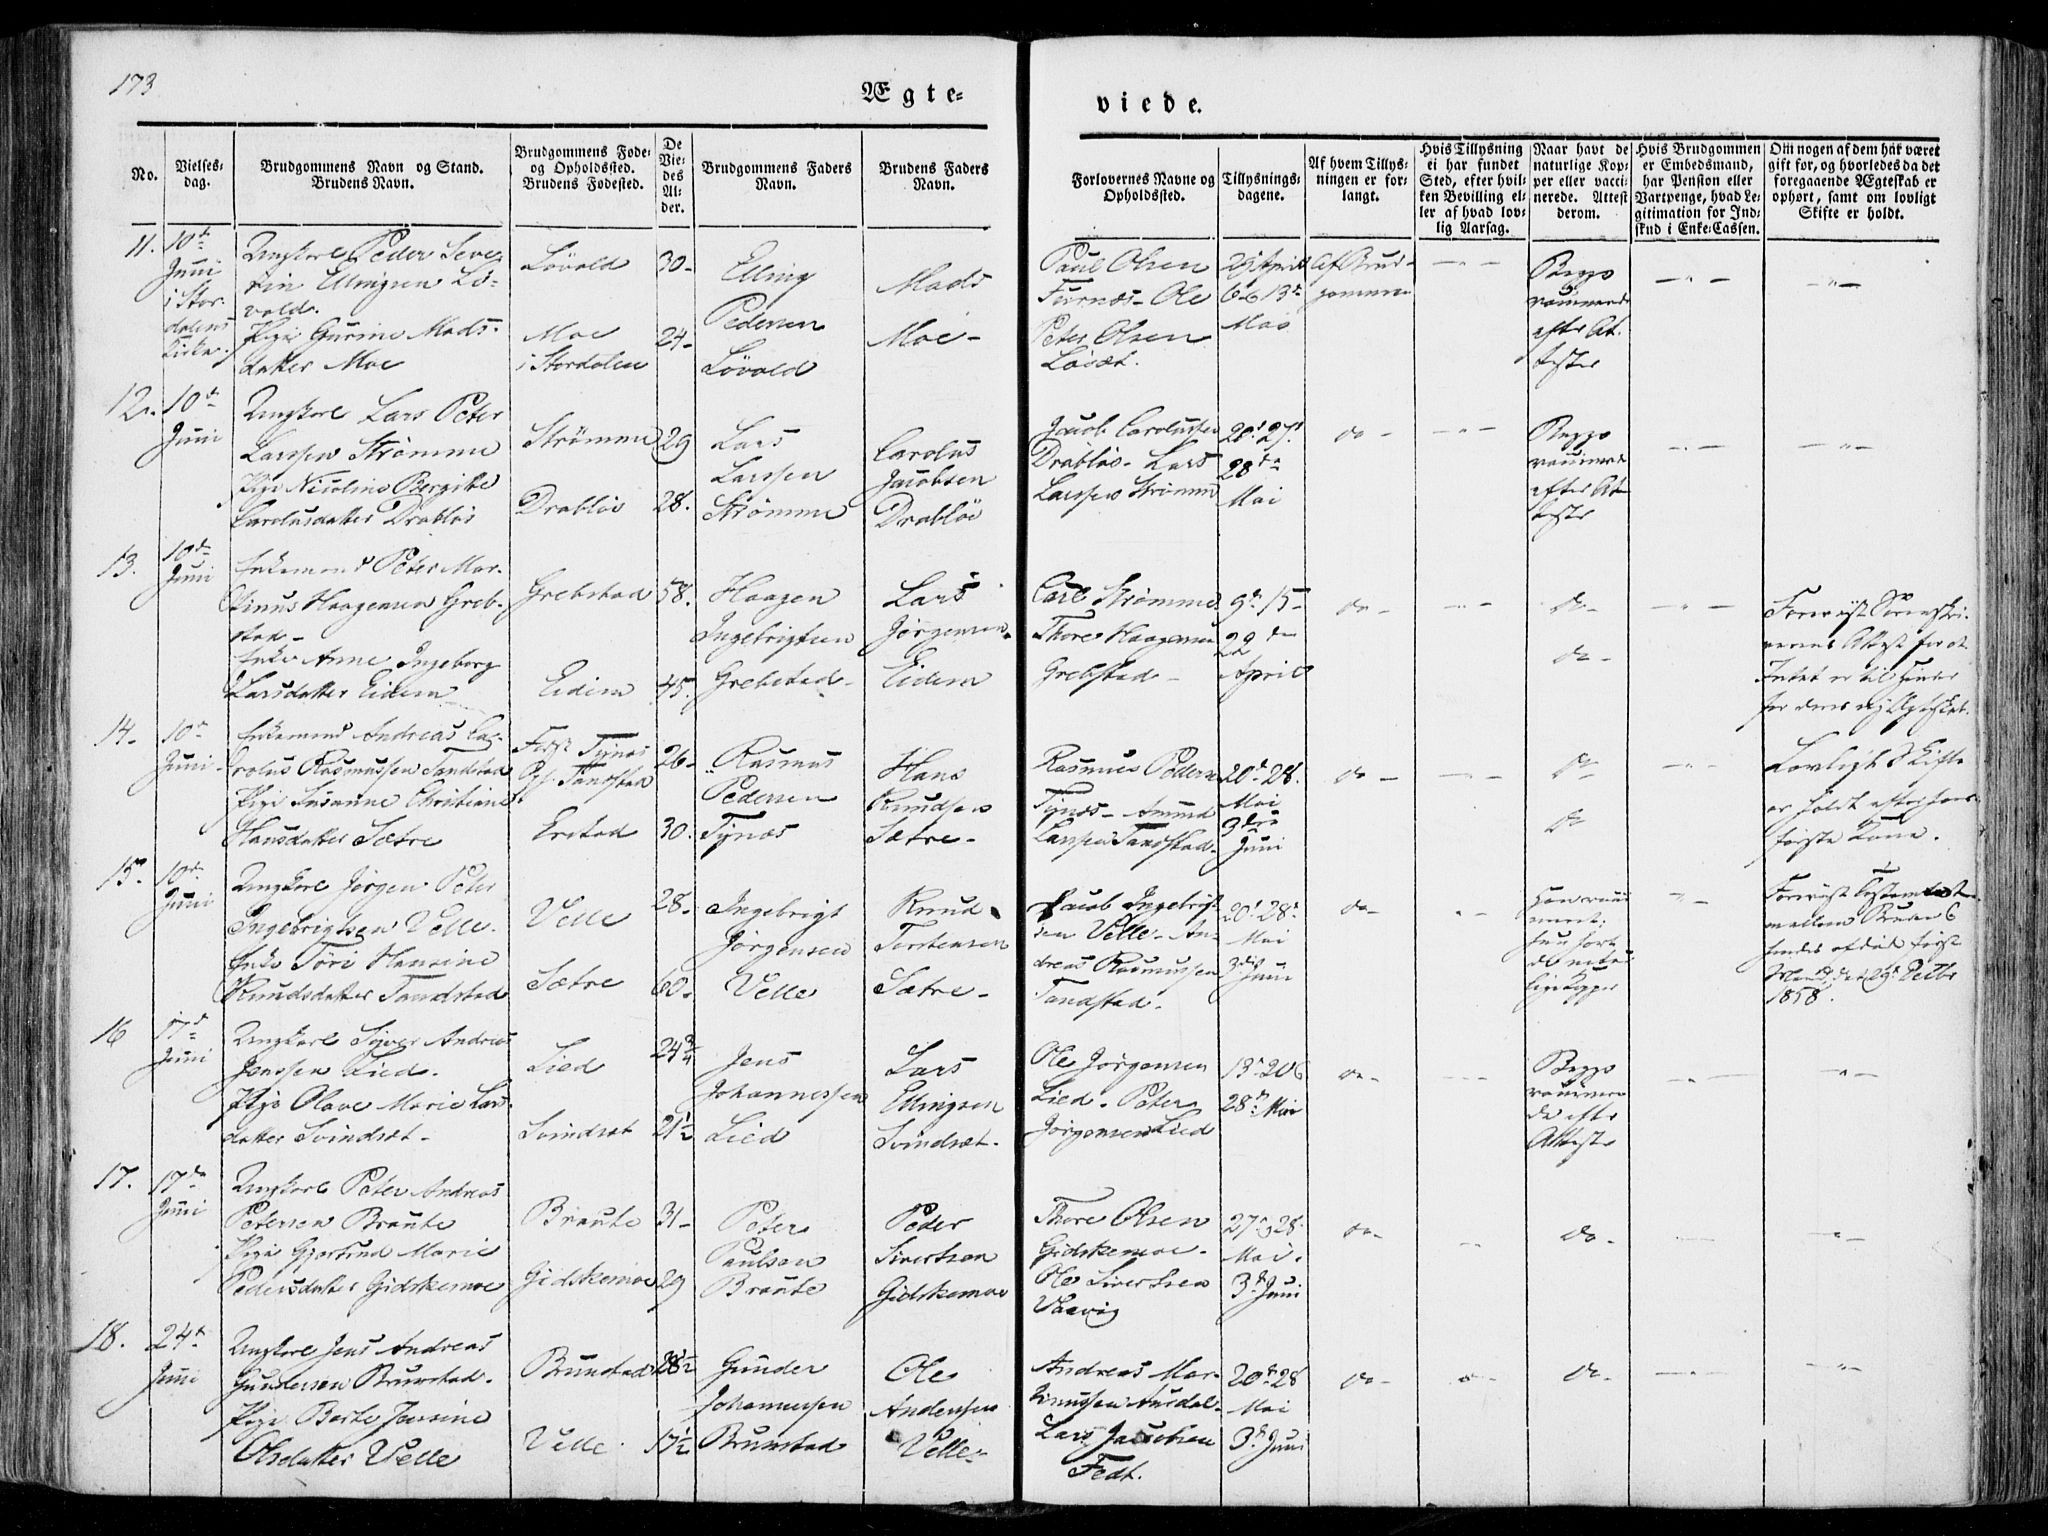 173
Ægte-
viede.
No.
Vielses-
dag.
Brudgommens Navn og Stand.
Brudens Navn.
Brudgommens Føde-
og Opholdssted.
Brudens Fødested.
De
Vie-
des
Al-
der.
Brudgommens Faders
Navn.
Brudens Faders
Navn.
Forlovernes Navne og
Opholdssted.
Tillysnings-
dagene.
Af hvem Tillys-
ningen er for-
langt.
Hvis Tillysning
ei har fundet
Sted, efter hvil-
ken Bevilling el-
ler af hvad lov-
lig Aarsag.
Naar havt de
naturlige Kop-
per eller vacci-
nerede. Attest
derom.
Hvis Brudgommen
er Embedsmand,
har Pension eller
Vartpenge, hvad Le-
gitimation for Ind-
skud i Enke-Cassen.
Om nogen af dem har været
gift før, og hvorledes da det
foregaaende Ægteskab er
ophørt, samt om lovligt
Skifte er holdt.
11.
10de
Juni
i Stor-
dalens
Kirke.
Ungkarl Peder Seve-
rin Ellingsen Lö-
vold.
Pige Gurine Mads-
datter Moe
Lövold
Moe
i Stordalen
30-
24-
Elling
Pedersen
Lövold
Mads
Moe-
Paul Olsen
Furnæs- Ole
Peter Olsen
Løsæt.
29 April
6 & 13de
Mai
Af Brud-
gommen
Begge
vaccinerede
efter At-
tester
12.
10de
Juni
Ungkarl Lars Peter
Larssen Strømme
Pige Nicoline Bergithe
Carolusdatter Drabløs
Strømme
Drabløs
29
28.
Lars
Larssen
Strømme
Carolus
Jacobsen
Drabløs
Jacob Carolussen
Drabløs- Lars
Larssen Strømme
20. 27.
28de
Mai
do-
Begge
vaccinerede
efter At-
tester
13.
10de
Juni
Enkemand Peter Mar-
tinus Haagensen Greb-
stad-
Enke Anne Ingeborg
Larsdatter Eidem
Grebstad
Eidem
58.
45.
Haagen
Ingebrigtsen
Grebstad-
Lars
Jørgensen
Eidem
Carl Strømme
Thore Haagensen
Grebstad-
9de 15-
22den
April
do-
do-
do-
Foreviist Sorenskri-
verens Attest for at
Intet er til Hinder
for deres nye Ægteskab.
14-
10de
Juni-
Enkemand Andreas Ca-
rolus Rasmussen Tandstad
Pige Susanne Christiane
Hansdatter Sætre
Født Tynes
Op. Tandstad
Erstad
26-
30.
Rasmus
Pedersen
Tynæs
Hans
Knudsen
Sætre-
Rasmus Pedersen
Tynæs- Amund
Larssen Tandstad-
20. 28.
Mai
3die
Juni
do-
do
do
Lovligt Skifte
er holdt efter hans
første Kone.
15.
10de
Juni
Ungkarl Jørgen Peter
Ingebrigtsen Velle.
Enke Töri Hansine
Knudsdatter Tandstad
Velle
Sætre
28.
60-
Ingebrigt
Jørgensen
Velle
Knud
Torstensen
Sætre-
Jacob Ingebrigt-
sen Velle- An-
dreas Rasmussen
Tandstad-
20. 28.
Mai
3die Juni
do-
Han vacci-
neret;
hun havt
de natur-
lige Kopper
Foreviist Testament
mellem Bruden &
hendes afdøde første
Mand, det 29 Octbr
1858.
16
17de
Juni
Ungkarl Siver Andreas
Jenssen Lied.
Pige Olave Marie Lars-
datter Svindset-
Lied
Svindset
24 3/4
21 1/2
Jens
Johannessen
Lied
Lars
Ellingsen
Svindset-
Ole Jørgensen
Lied- Peter
Jørgensen Lied
13. 20 &
28de Mai
do-
Begge
vaccinere-
de efter
Attester
17.
17de
Juni
Ungkarl Peter Andreas
Petersen Braute
Pige Gjertrud Marie
Pedersdatter Gidskemoe
Braute
Gidskemoe
31-
29
Peter
Paulsen
Braute
Peder
Sivertsen
Gidskemoe
Thore Olsen
Gidskemoe-
Ole Sivertsen
Vaavig
27. 28.
Mai.
3de Juni
do-
do-
18.
24de
Juni
Ungkarl Jens Andreas
Gundersen Brunstad.
Pige Berthe Jensine
Olsdatter Velle
Brunstad
Velle.
28 1/2
17 1/2
Gunder
Johannessen
Brunstad
Ole
Andersen
Velle-
Andreas Mar-
tinussen Aurdal-
Lars Jacobsen
Fedt.
20. 28
Mai
3de Juni
do-
do-